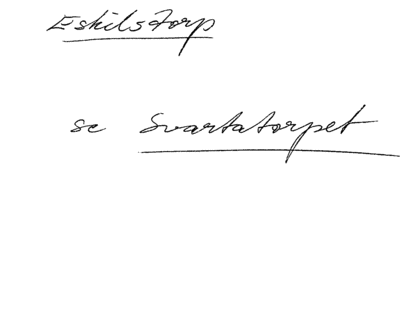 Eskilstorp
se Svartatorpet